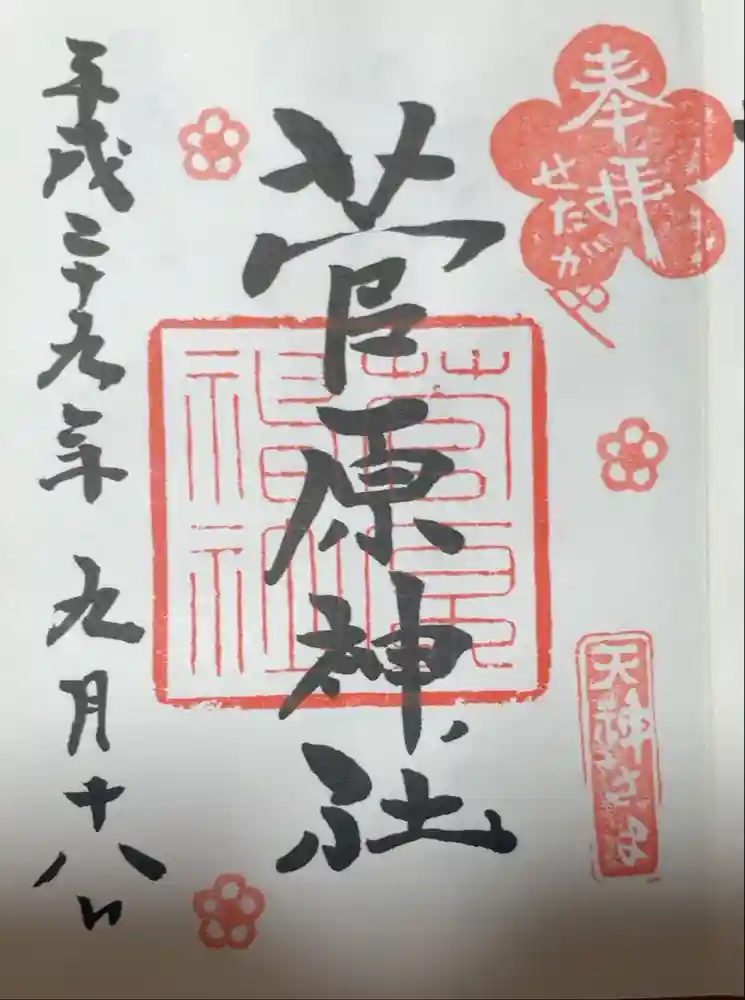 奉拝
せたがや
天神さま
菅原神社
菅原神社
平成二十九年九月十八日